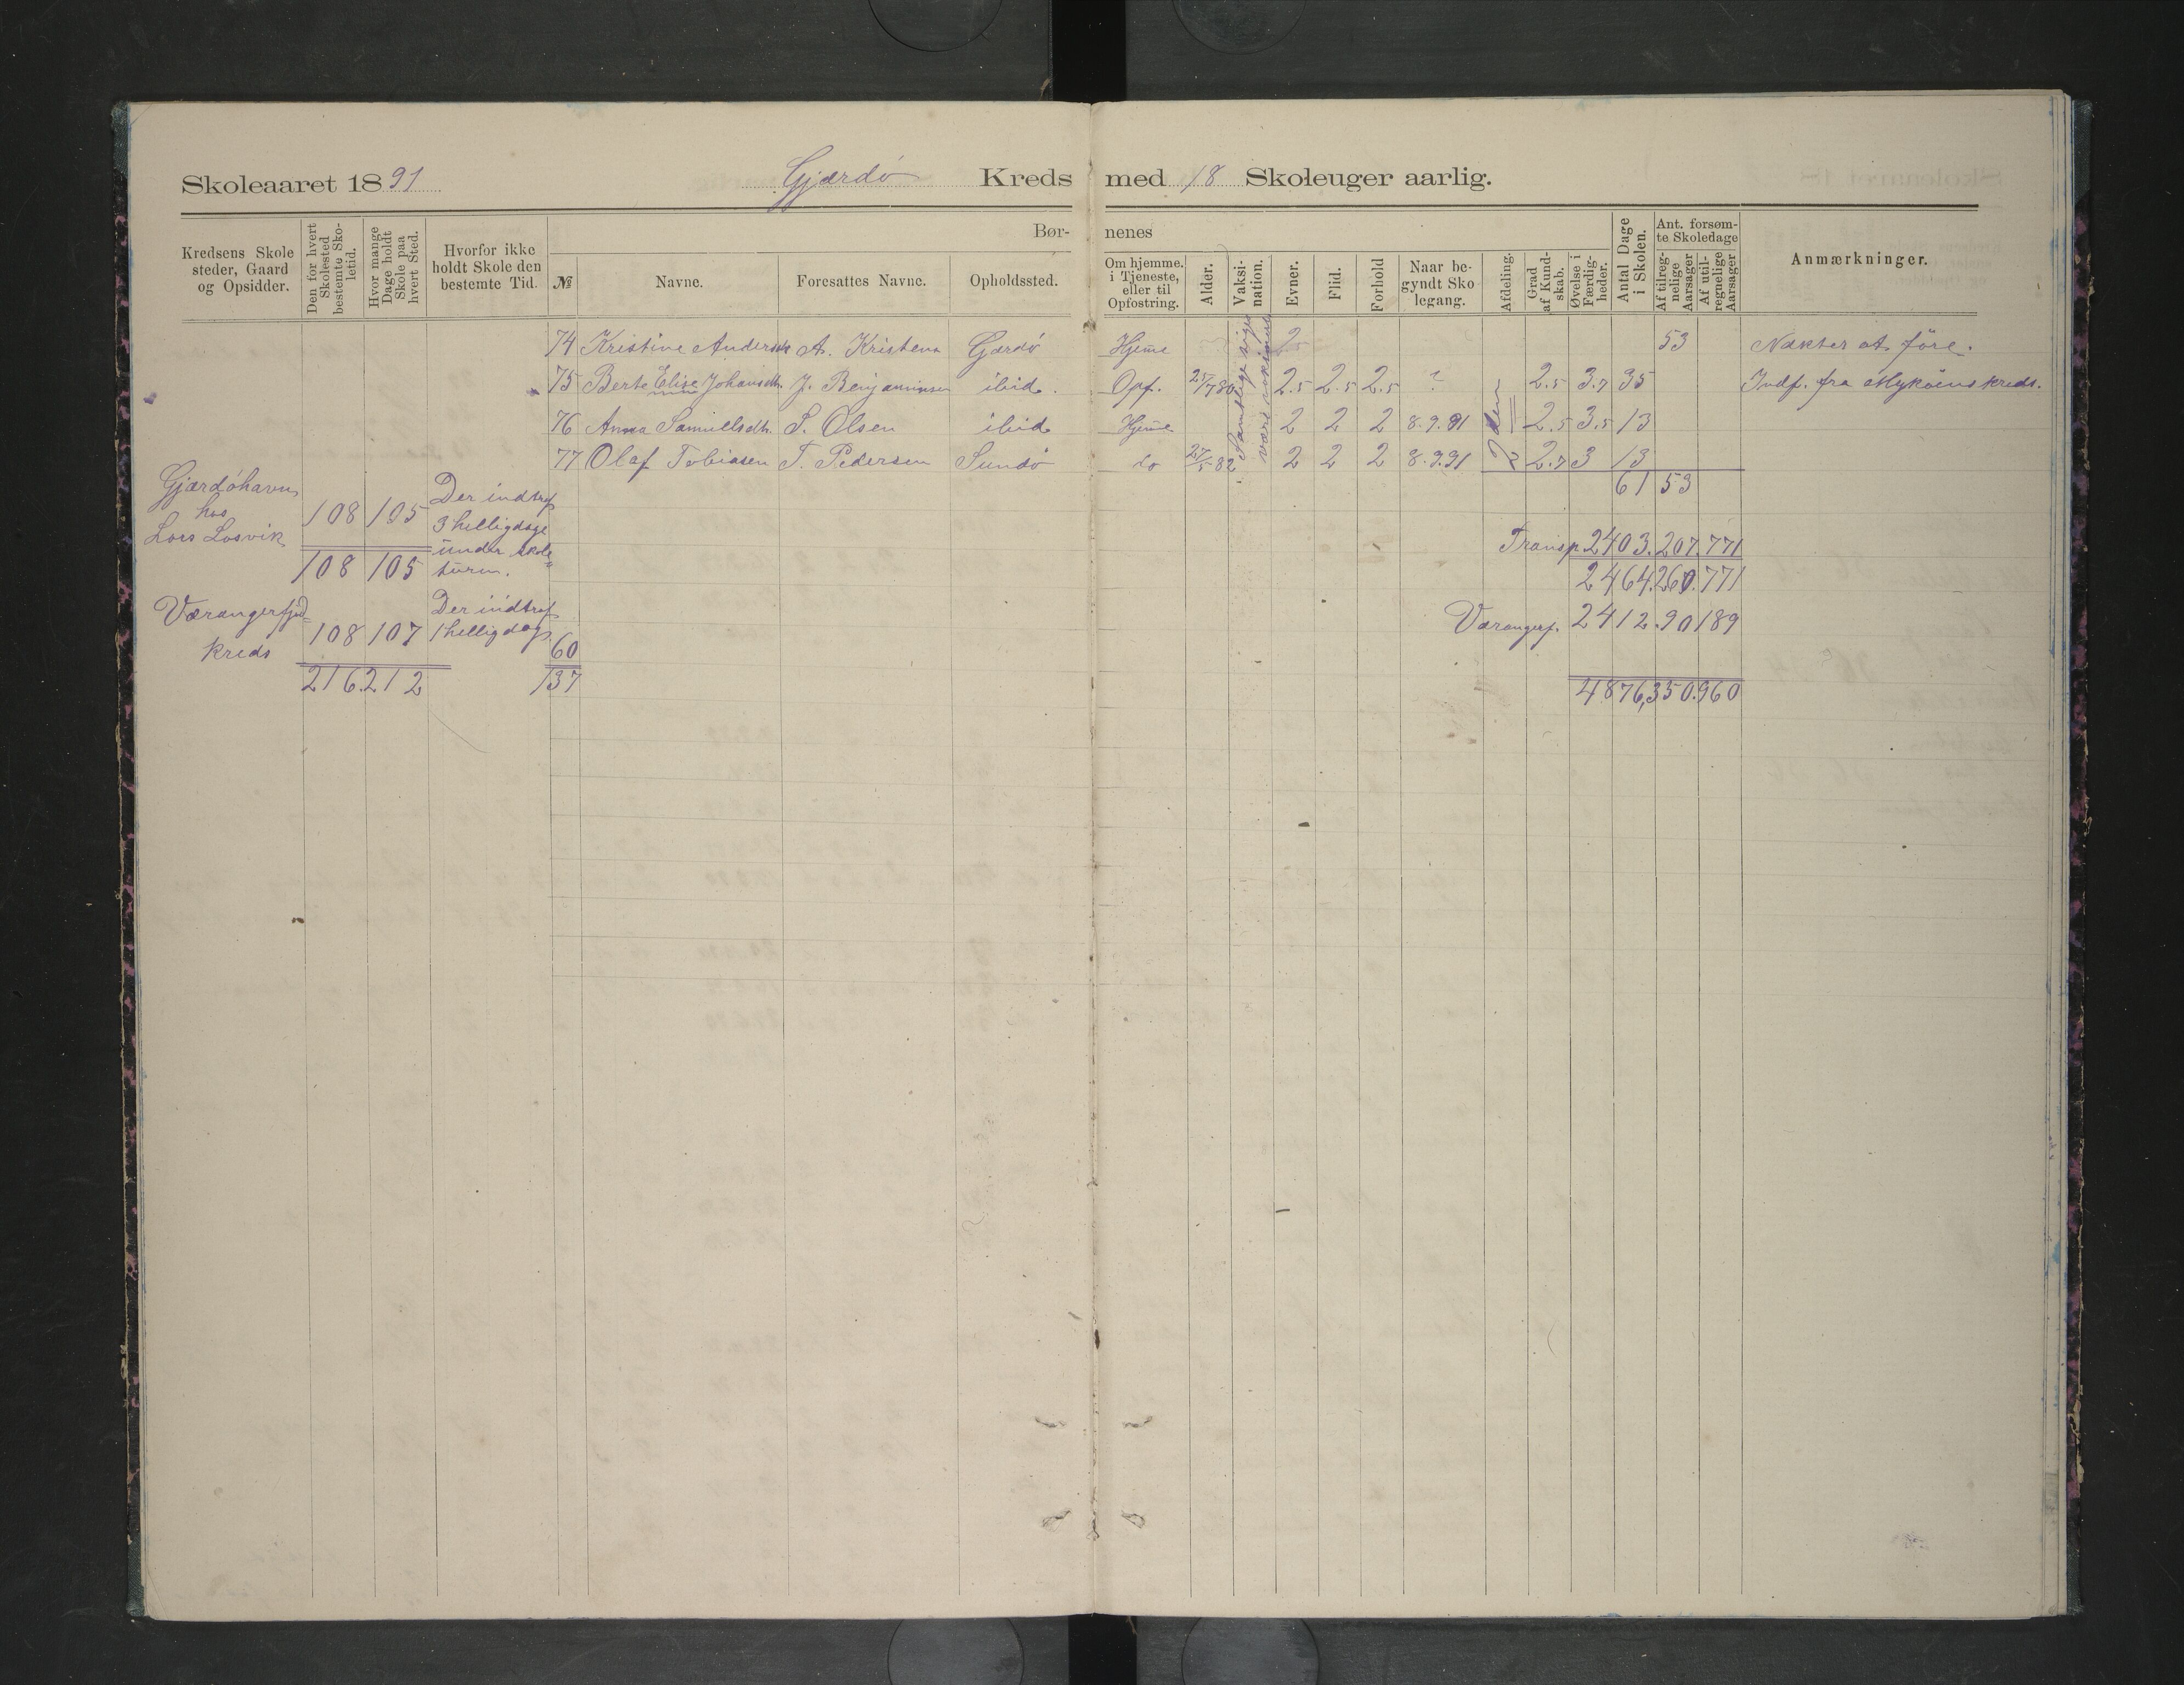 Skoleaaret 1891 Gjærdö Kreds med 18 Skoleuger aarlig.
Kredsens Skolesteder, Gaard og Opsidder.
Den for hvert Skolested bestemte Skoletid.
Hvor mange Dage holdt Skole paa hvert Sted.
Hvorfor ikke holdt Skole den bestemte Tid.
Børnenes
№ Navne. Foresattes Navne. Opholdssted.
Om hjemme, i Tjeneste, eller til Opfostring.
Alder.
Vaksination.
Evner.
Flid.
Forhold
Naar begyndt Skolegang.
Afdeling.
Grad af Kundskab.
Øvelse i Færdigheder.
Antal Dage i Skolen.
Ant. forsømte Skoledage
Af tilregnelige Aarsager
Af utilregnelige Aarsager
Anmærkninger.
74 Kristine Andersdt. A. Kristens Gærdö Hjeme 2 53 Nækter at före.
75 Berte Elise Johansdtr. J. Benjaminsen ibid. Opf. 25/7 80 2.5 2.5 2.5 ? 2.5 3.7 35 Indf. fra Myköens kreds.
76 Anna Samuelsdtr. S. Olsen ibid Hjeme 2 2 2 8.9.91 2.5 3.5 13
77 Olaf Tobiasen T. Pedersen Sundö do 27/5 82 2 2 2 8.9.91 2.7 3 13
Samtlige siges være vakinert
61 53
Gjærdöhavn
hos
Lars Losvik
108 105
Der indtraf
3 helligdage
under skole=
turen.
108 105
Transp. 2403. 207. 771
2464. 260. 771
Værangerfjord=
kreds
108 107
Der indtraf
1 helligdag.
60
Værangerf. 2412. 90 189
216. 212 137
4876, 350. 960